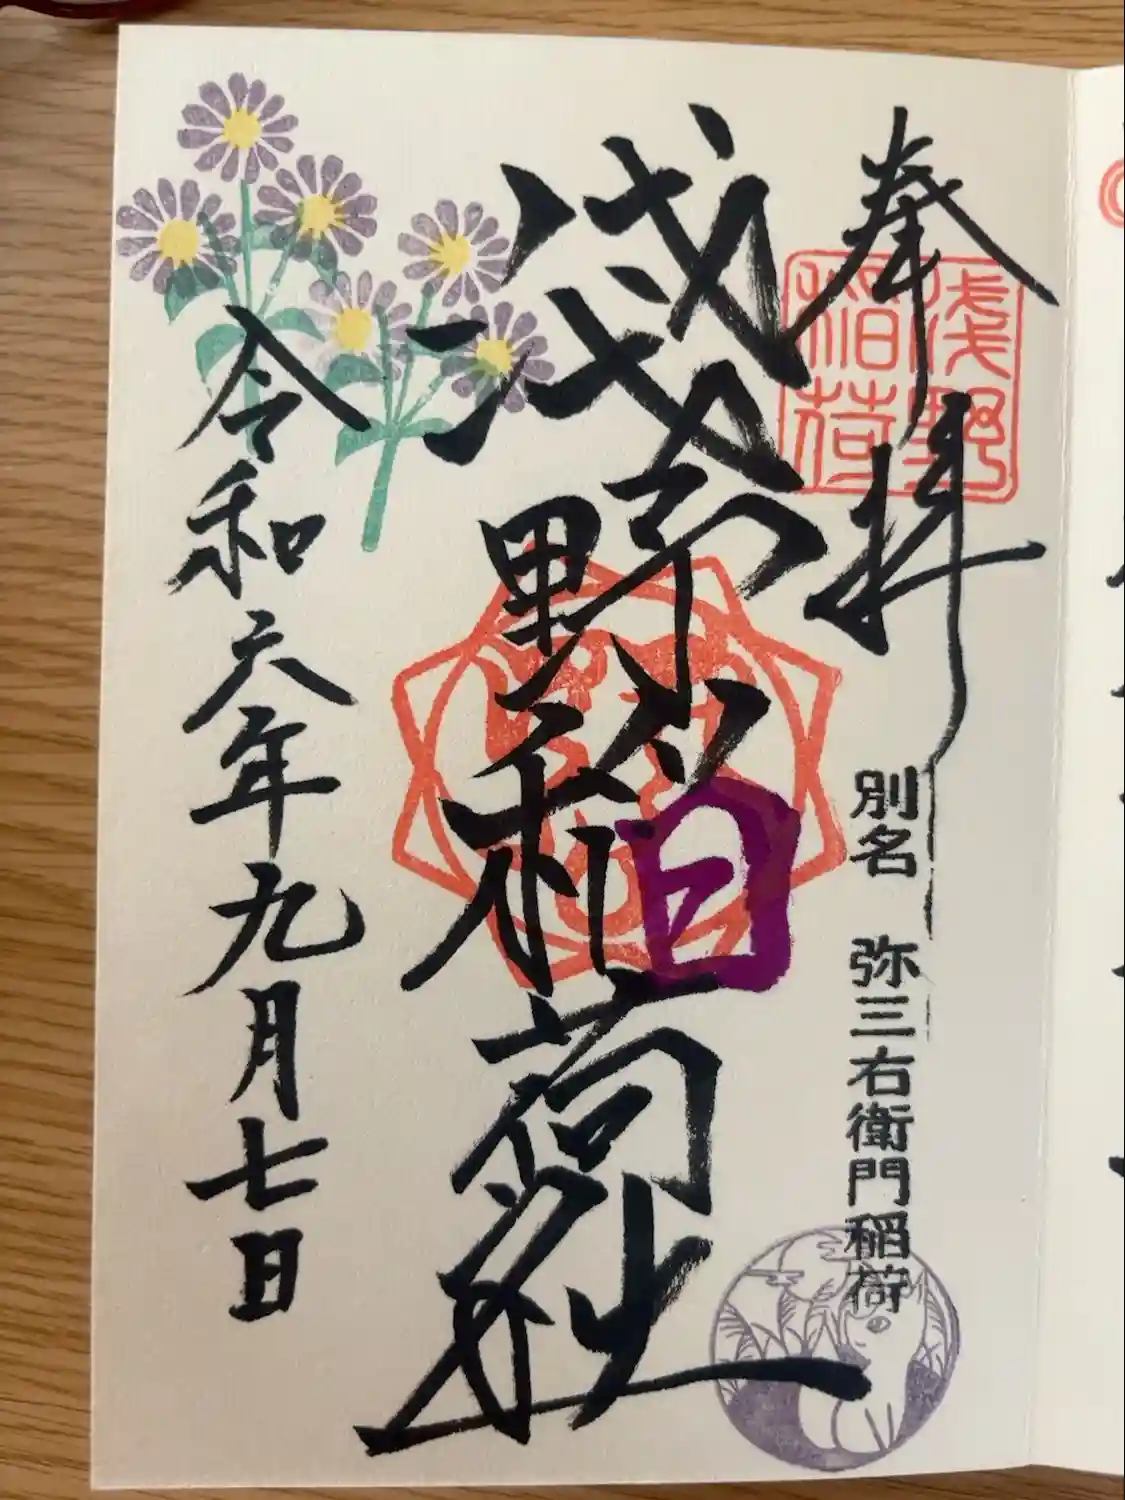 奉拝
浅野稲荷
別名 弥三右衛門稲荷
淺野稲荷社
令和六年九月七日